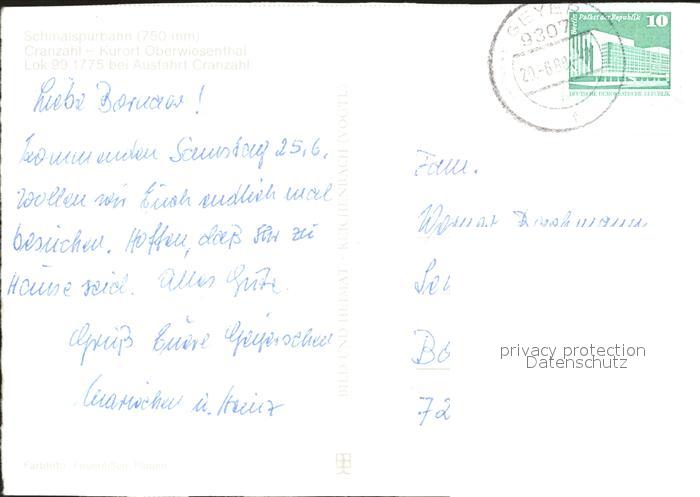 Schmalspurbahn (750 mm)
Cranzahl – Kurort Oberwiesenthal
Lok 99 1775 bei Ausfahrt Cranzahl
Liebe
kommenden Samstag 25.6.
wollen wir Euch endlich mal
besuchen. Hoffen, daß Ihr zu
Hause seid. Alles Gute.
Gruß Eure
u. Heinz
BILD UND HEIMAT · REICHENBACH (VOGTL
GEYER
9307
Palast der Republik 10
DEUTSCHE DEMOKRATISCHE REPUBLIK
Fam.
Werner
Bö
72
privacy protection
Datenschutz